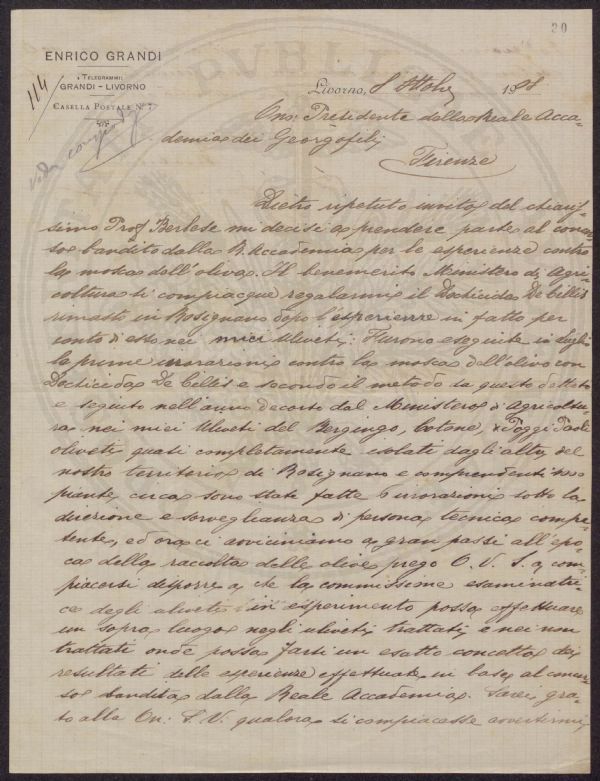 20
ENRICO GRANDI
TELEGRAMMI:
GRANDI - LIVORNO
CASELLA POSTALE N° 7
114
Livorno, 8 Ottobre 1908
On: Presidente della Reale Acca-
demia dei Georgofili
Firenze
Dietro ripetuto invito del chiaris-
simo Prof Berlese mi decisi a prendere parte al concor-
so bandito dalla R. Accademia per le esperienze contro
la mosca dell'oliva. Il benemerito Ministero di Agri-
coltura si compiacque regalarmi il Dachicida De Cillis
rimasto in Rosignano dopo l'esperienze in fatto per
conto d'esso nei miei Uliveti: Furono eseguite in Luglio
le prime irrorazioni contro la mosca dell'olivo con
Dachicida De Cillis e secondo il metodo da questo dettato
e seguito nell'anno decorso dal Ministero d'Agricoltu-
ra nei miei Uliveti del Cotone, e Poggi Paoli
oliveti quasi completamente isolati dagli altri del
nostro territorio di Rosignano e comprendenti
piante circa sono state fatte 6 irrorazioni sotto la
direzione e sorveglianza di persona tecnica compe-
tente, ed ora ci avviciniamo a gran passi all'epo-
ca della raccolta delle olive prego O. V. S. a com-
piacersi disporre a che la commissione esaminatri-
ce degli uliveti in esperimento possa effettuare
un sopra luogo negli uliveti trattati e nei non
trattati onde possa farsi un esatto concetto dei
resultati delle esperienze effettuate in base al concor-
so bandito dalla Reale Accademia. Sarei gra-
to alla On: S. V. qualora si compiacesse avvertirmi